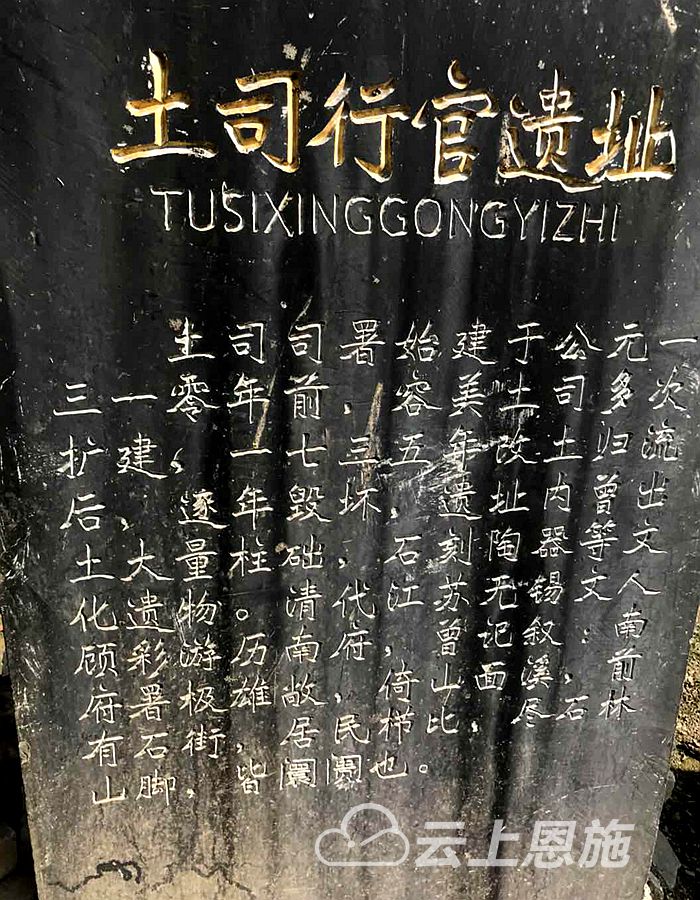 土司行官遗址
TUSIXINGGONGYIZHI
土司司署始建于公元一
三一零年前，容美土司多次
扩建，一七三五年改土归流
后，逐年毁坏，遗址内曾出
土大量柱础石刻陶器等文
化遗物。清代江苏无锡文人
顾彩游历南府，曾记叙：南
府署极雄敞，倚山面溪，前
有石街，民居栉比，尽石林
山脚，皆阛阓也。
云上恩施